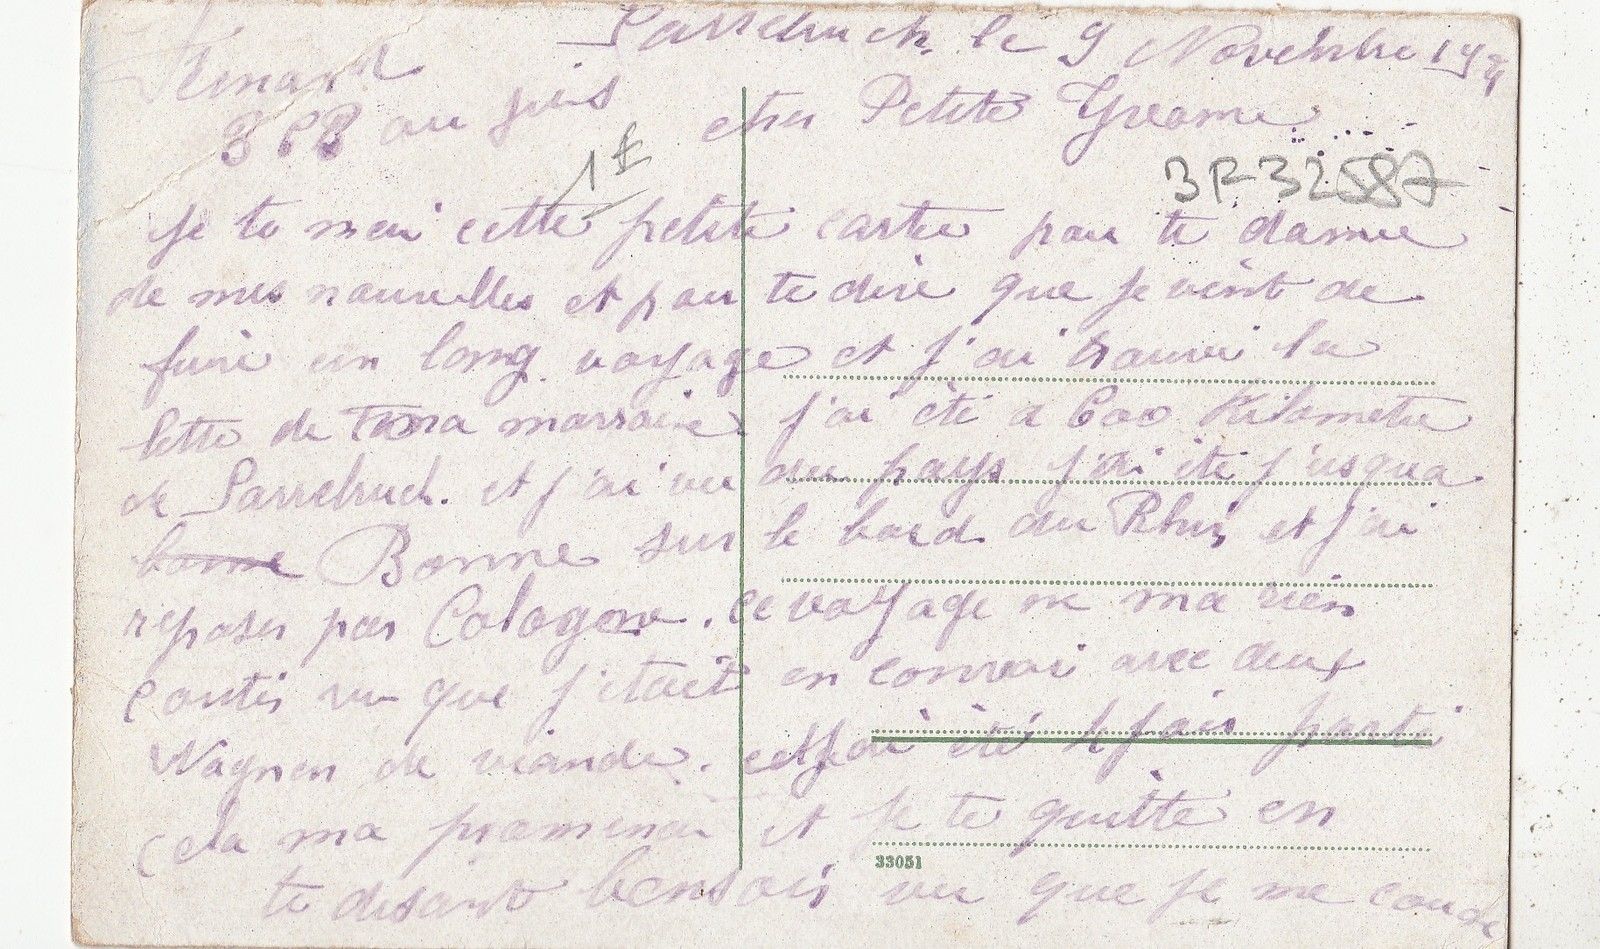 Sarrebruck le 9 Novembre 19
Fernand
3 PP au jus
cher Petite Yvonne
1 €
3 R 32587
je te mai cette petite carte pou te donnee
de mes nouvelles et pou te dire que je vint de
faire un long voyage et j'ai trouvé la
lette de ma marraine j'ai été a 600 Kilometre
de Sarrebruck. et j'ai vu du pays j'ai été j'usqua
bonne Bonne sur le bord du Rhin et j'ai
repaser par Cologne. ce voyage ne ma rien
couter vu que j'etait en convoi avec deux
Wagnon de viande. et j'ai été 4 jour parti
cela ma promener et je te quitte en
33051
te disant bonsoir vu que je me couche